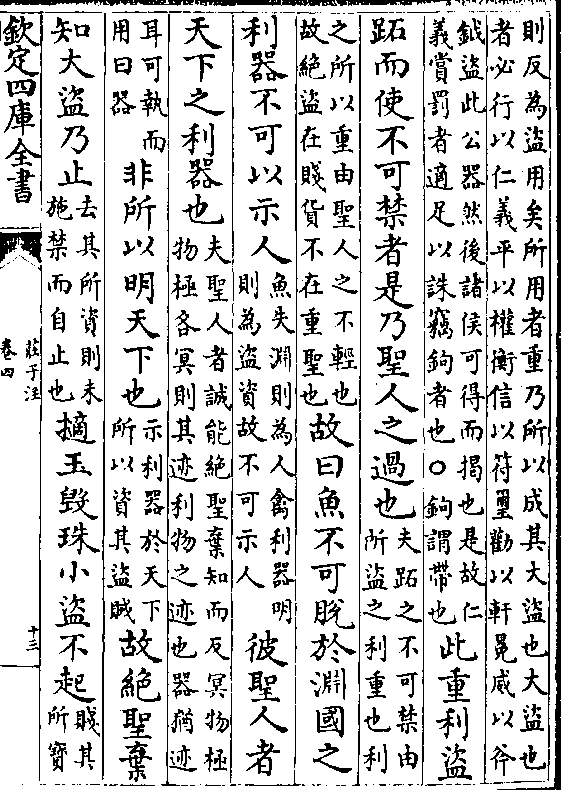 則反為盜用矣所用者重乃所以成其大盜也大盜也
者必行以仁義平以權衡信以符璽勸以軒冕威以斧
鉞盜此公器然後諸侯可得而揭也是故仁
義賞罰者適足以誅竊鉤者也○鉤謂帶也
此重利盜
跖而使不可禁者是乃聖人之過也
夫跖之不可禁由
所盜之利重也利
之所以重由聖人之不輕也
故絕盜在賤貨不在重聖也
故曰魚不可脫於淵國之
利器不可以示人
魚失淵則為人禽利器明
則為盜資故不可示人
彼聖人者
天下之利器也
夫聖人者誠能絕聖棄知而反冥物極
物極各冥則其迹利物之迹也器猶迹
耳可執而
用曰器
非所以明天下也
示利器於天下
所以資其盜賊
故絕聖棄
知大盜乃止
去其所資則未
施禁而自止也
擿玉毀珠小盜不起
賤其
所寶
欽定四庫全書
莊子注
卷四
十三